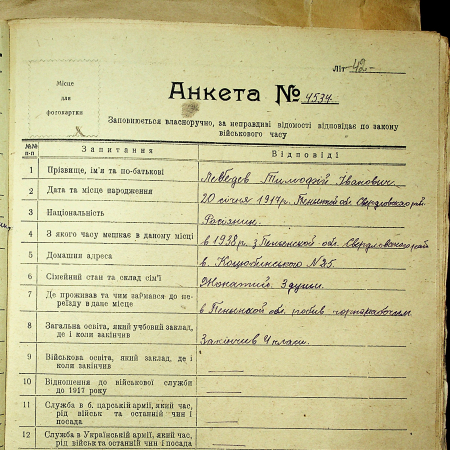 Літ 42-
Місце
для
фотокартки
Анкета № 4534
Заповнюється власноручно, за неправдиві відомості відповідає по закону
військового часу
№№ п-п Запитання Відповіді
1 Прізвище, ім'я та по-батькові Лебедєв Тимофій Іванович.
2 Дата та місце народження 20 січня 1917р. обл. Свердловского рай.
3 Національність Росіянин.
4 З якого часу мешкає в даному місці в 1938р. з Пензенской обл. Свердловского рай
5 Домашня адреса в. Коцюбинського №35.
6 Сімейний стан та склад сім'ї Жонатий. 3 душі.
7 Де проживав та чим займався до пе-
реїзду в дане місце в Пензенской обл. робив чорнорабочим
8 Загальна освіта, який учбовий заклад,
де і коли закінчив Закінчив 4 класи.
9 Військова освіта, який заклад, де і
коли закінчив
10 Відношення до військової служби
до 1917 року
11 Служба в б. царській армії, який час,
рід військ та останній чин і
посада
12 Служба в Українській армії, який час,
рід військ та останній чин і посада